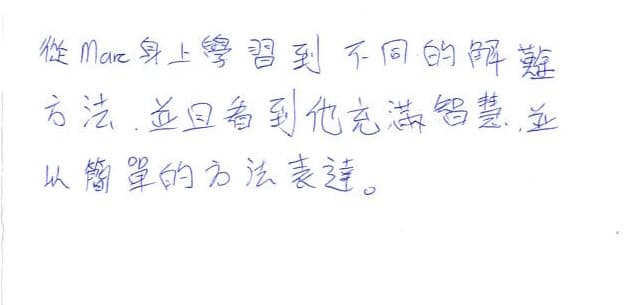 從Marc身上學習到不同的解難
方法,並且看到他充滿智慧,並
以簡單的方法表達。